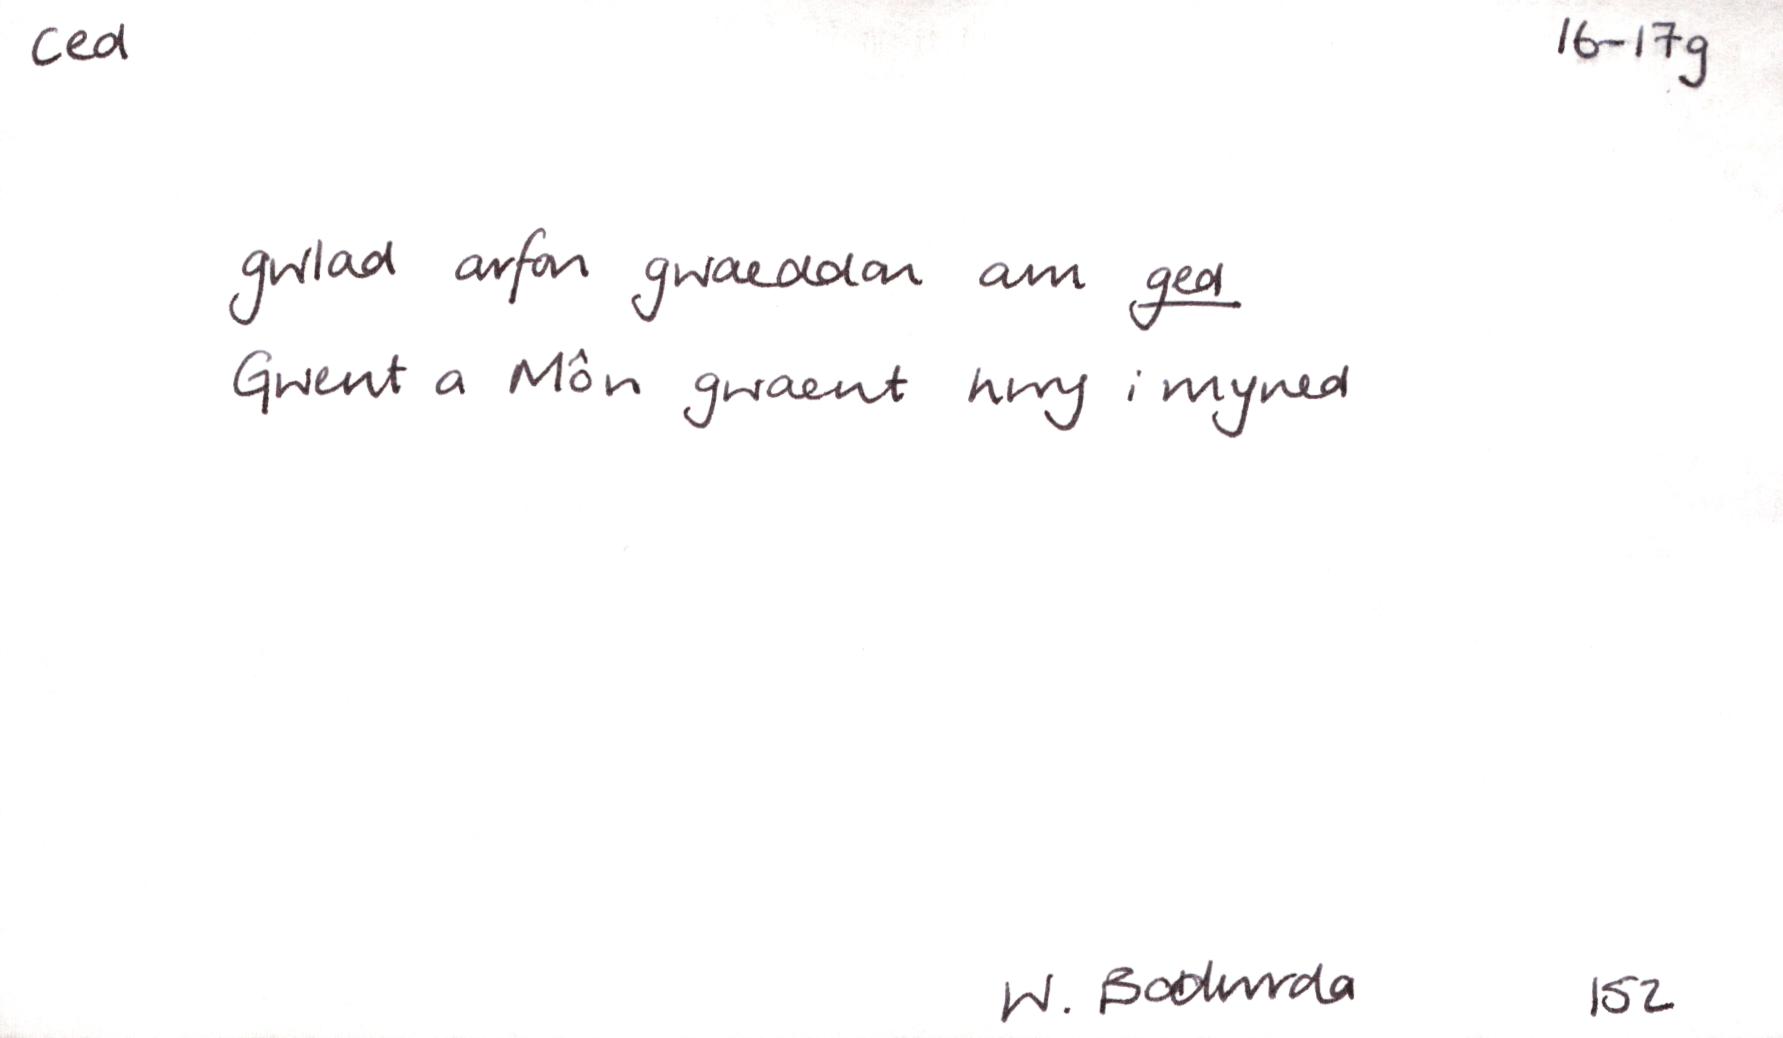 ced 16-17g
gwlad arfon gwaeddan am ged
Gwent a Môn gwaent hwy i myned
W. Bodwrda 152